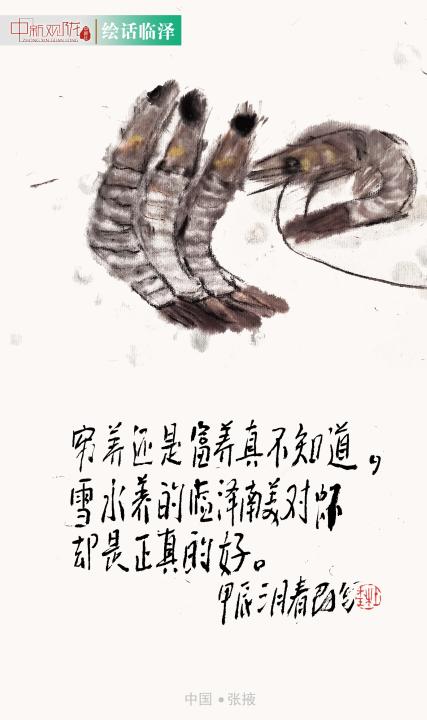 中新观陇
ZHONG XIN GUAN LONG
绘话临泽
穷养还是富养真不知道，
雪水养的临泽南美对虾
却是正真的好。
甲辰三月春
中国 • 张掖